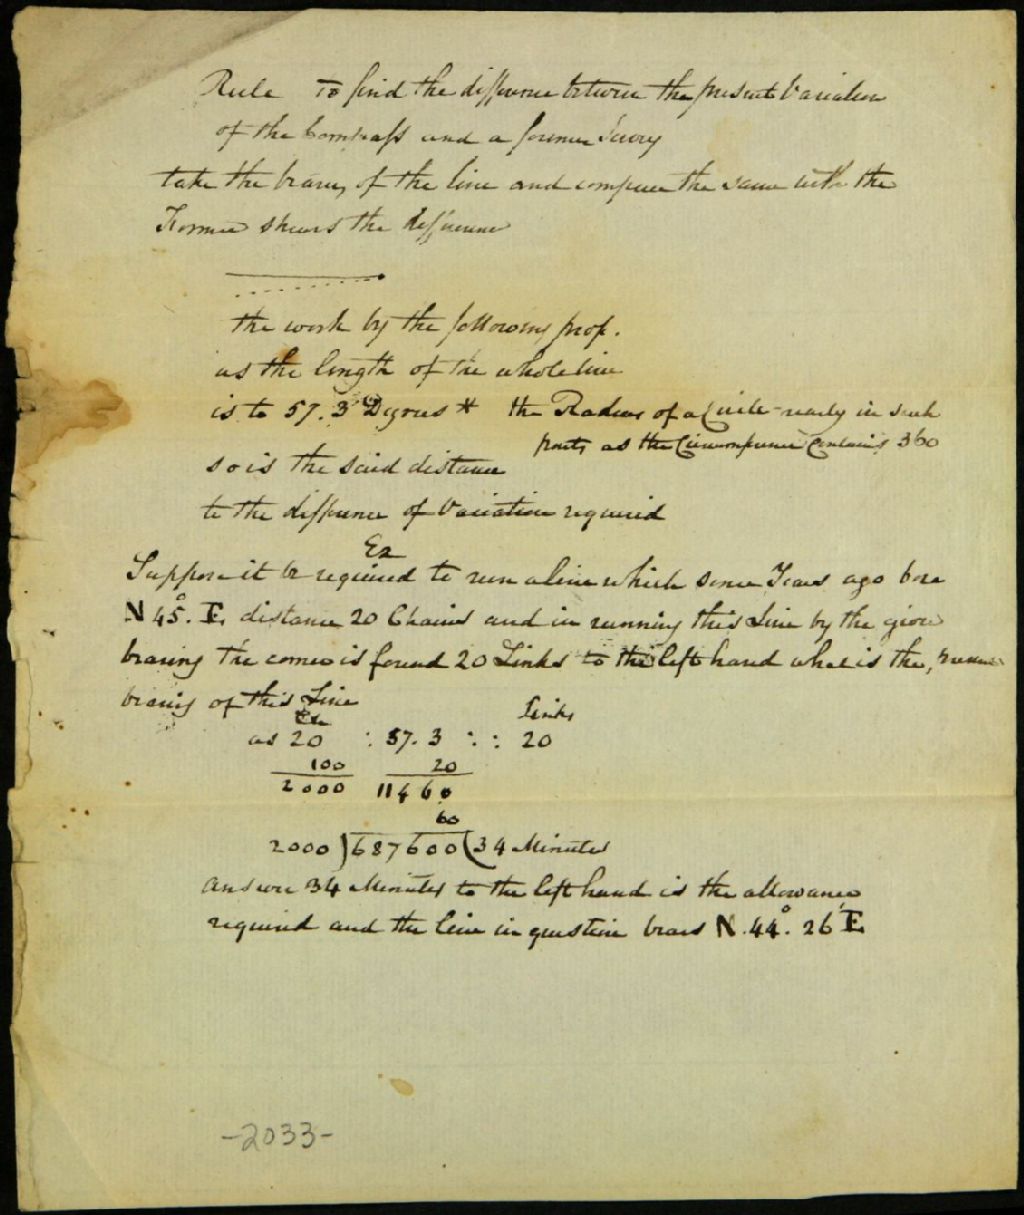 Rule To find the difference between the present Variation
of the Compass and a former Survy
take the bearing of the line and compare the same with the
Former shews the difference
the work by the following prop.
as the length of the whole line
is to 57.3 Degrees * the Radius of a Circle nearly in such
parts as the Circumference Contains 360
so is the said distance
to the difference of Variation required
Ex
Suppose it be required to run a line which some Years ago bore
N 45°. E. distance 20 Chains and in running this Line by the given
bearing the corner is found 20 Links to the left hand what is the present
bearing of this Line
Ch Links
as 20 : 57.3 : : 20
100 20
2000 1146 0
60
2000)687600(34 Minutes
Answer 34 Minutes to the left hand is the allowance
required and the line in question bears N. 44°. 26' E.
-2033-